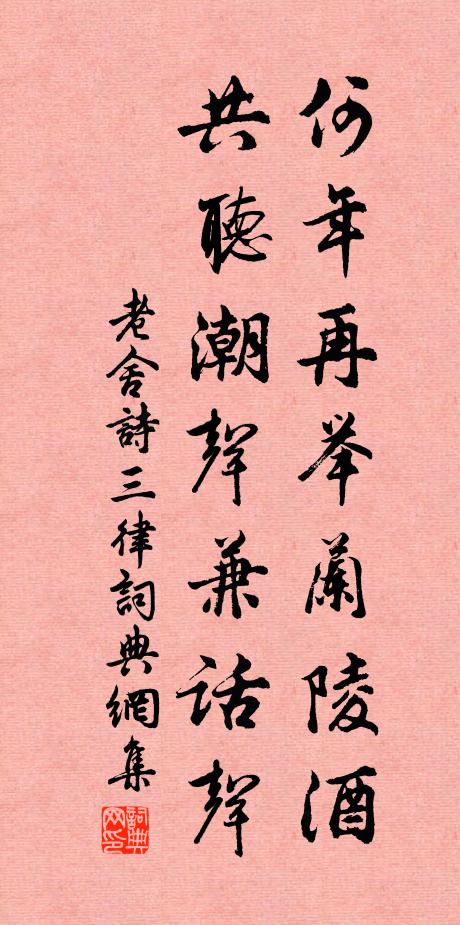 何年再举蘭陵酒
共聽潮聲兼话聲
老舍詩三律詞典網集
詞典网印